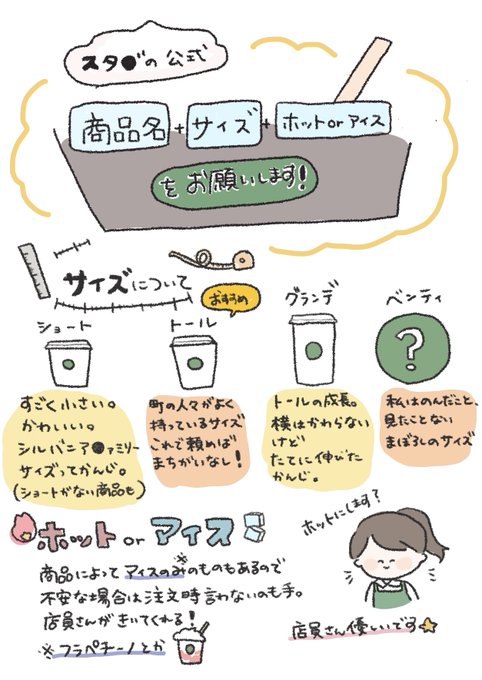 スタ●の公式
商品名+サイズ+ホットorアイス
をお願いします!
サイズについて
おすすめ
ショート
すごく小さい。
かわいい。
シルバニア●ァミリー
サイズってかんじ。
(ショートがない商品も)
トール
町の人々がよく
持っているサイズ
これで頼めば
まちがいなし!
グランデ
トールの成長。
横はかわらない
けど
たてに伸びた
かんじ。
ベンティ
?
私はのんだこと、
見たことない
まぼろしのサイズ
ホット or アイス
商品によってアイスのみ※のものもあるので
不安な場合は注文時言わないのも手。
店員さんがきいてくれる!
※フラペチーノとか
ホットにします?
店員さん優しいです